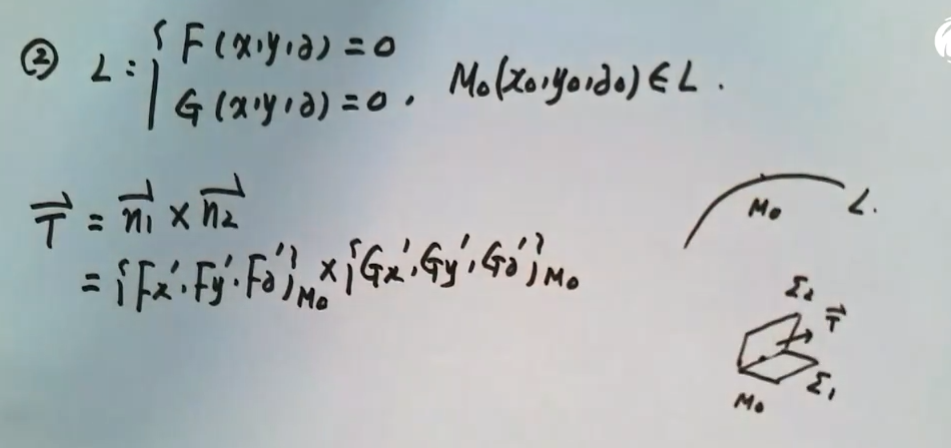 ② L: { F(x,y,z)=0
G(x,y,z)=0, M₀(x₀,y₀,z₀)∈L.
T⃗ = n⃗₁ × n⃗₂
= {Fx′,Fy′,Fz′}M₀ × {Gx′,Gy′,Gz′}M₀
M₀ L.
Σ₂ T⃗
Σ₁
M₀